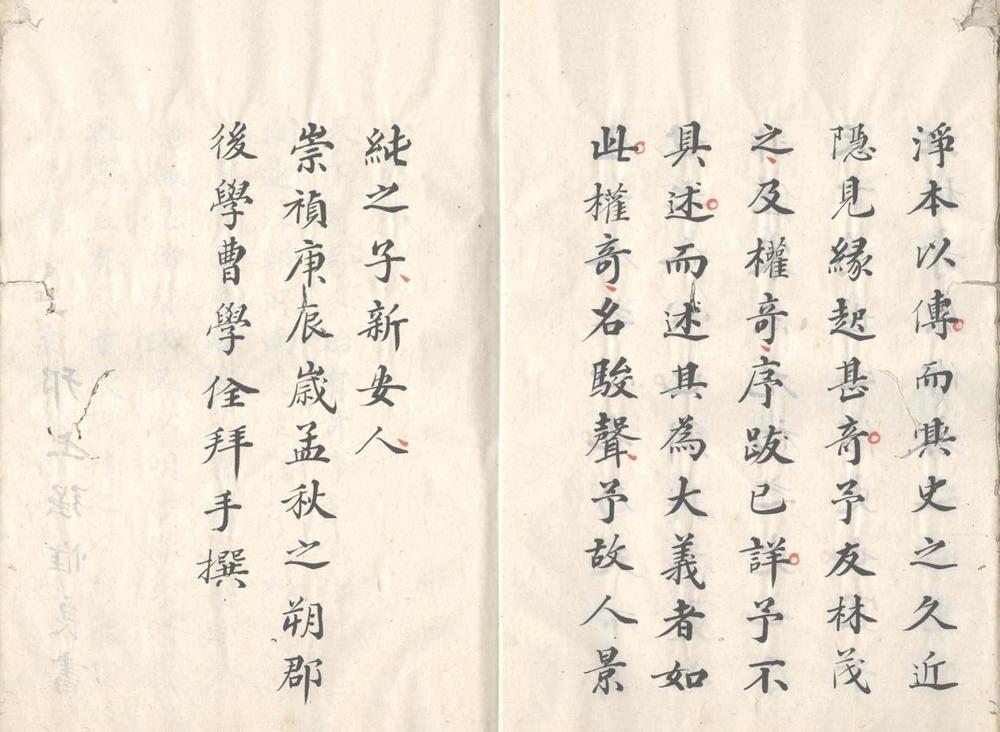 淨本以傳而其史之久近
隱見緣起甚奇予友林茂
之及權奇序跋已詳予不
具述而述其為大義者如
此權奇名駿聲予故人景
純之子新安人
崇禎庚辰歲孟秋之朔郡
後學曹學佺拜手撰